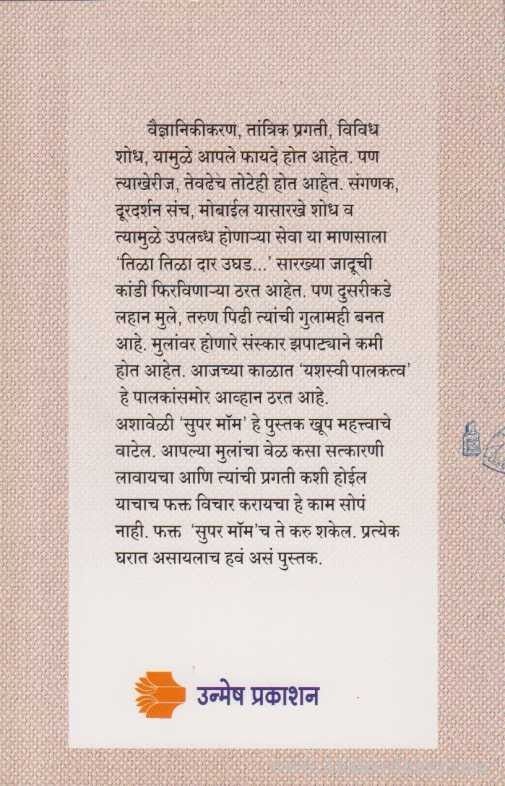 वैज्ञानिकीकरण, तांत्रिक प्रगती, विविध
शोध, यामुळे आपले फायदे होत आहेत. पण
त्याखेरीज, तेवढेच तोटेही होत आहेत. संगणक,
दूरदर्शन संच, मोबाईल यासारखे शोध व
त्यामुळे उपलब्ध होणाऱ्या सेवा या माणसाला
'तिळा तिळा दार उघड...' सारख्या जादूची
कांडी फिरविणाऱ्या ठरत आहेत. पण दुसरीकडे
लहान मुले, तरुण पिढी त्यांची गुलामही बनत
आहे. मुलांवर होणारे संस्कार झपाट्याने कमी
होत आहेत. आजच्या काळात 'यशस्वी पालकत्व'
हे पालकांसमोर आव्हान ठरत आहे.
अशावेळी 'सुपर मॉम' हे पुस्तक खूप महत्त्वाचे
वाटेल. आपल्या मुलांचा वेळ कसा सत्कारणी
लावायचा आणि त्यांची प्रगती कशी होईल
याचाच फक्त विचार करायचा हे काम सोपं
नाही. फक्त 'सुपर मॉम'च ते करु शकेल. प्रत्येक
घरात असायलाच हवं असं पुस्तक.
उन्मेष प्रकाशन